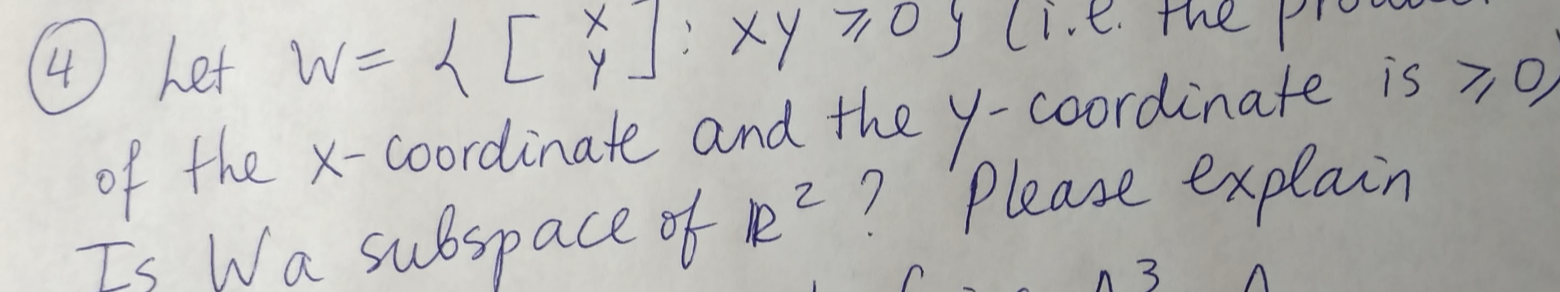 ④ Let W = { [ x y ] : xy ≥ 0 } (i.e. the
of the x-coordinate and the y-coordinate is ≥ 0)
Is W a subspace of ℝ² ? Please explain